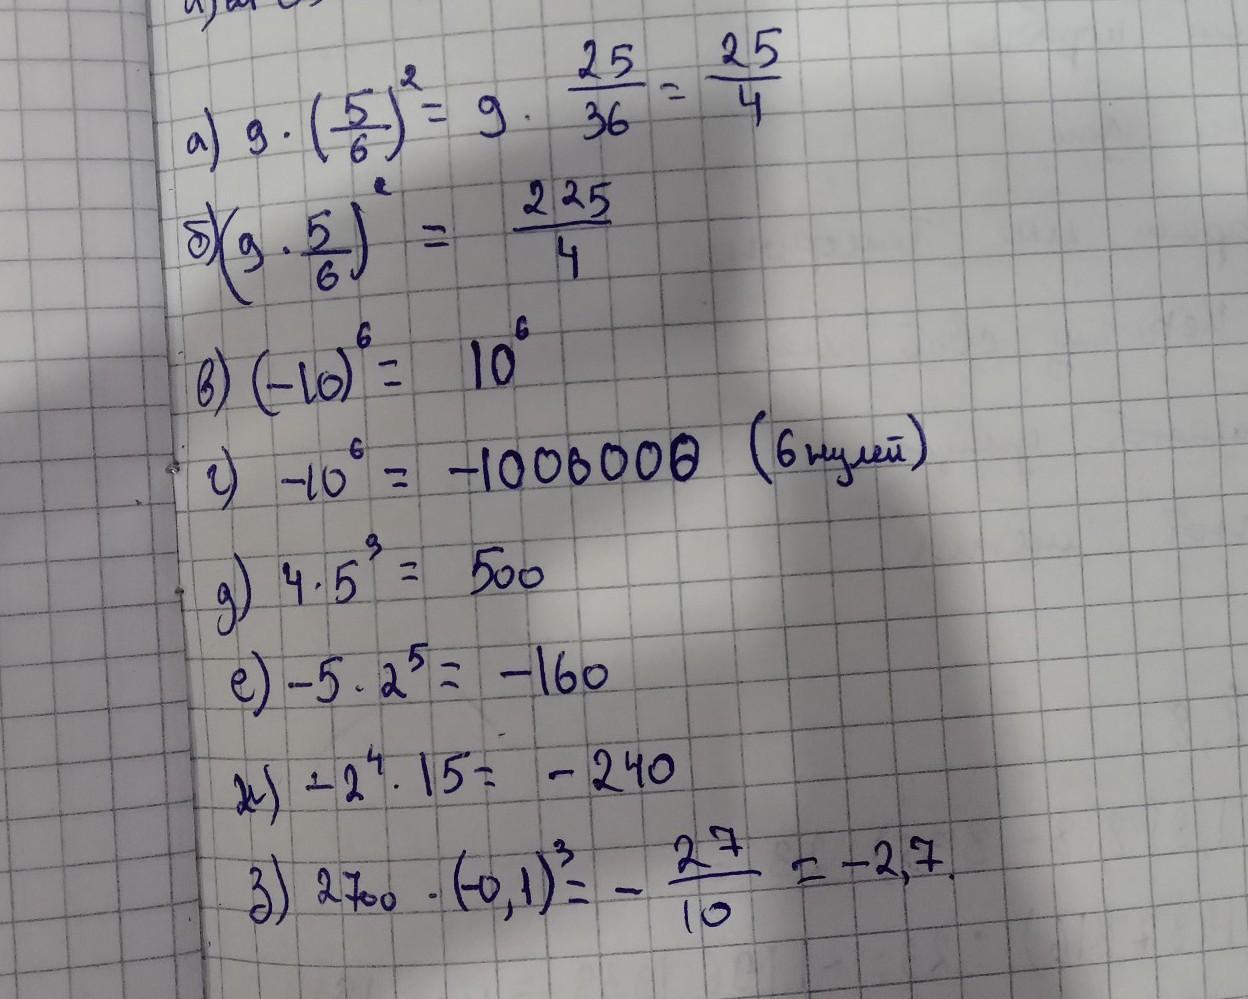 а) 9 · (5/6)² = 9 · 25/36 = 25/4
б) (9 · 5/6)² = 225/4
в) (-10)⁶ = 10⁶
г) -10⁶ = -1000000 (6 нулей)
д) 4 · 5³ = 500
е) -5 · 2⁵ = -160
ж) -2⁴ · 15 = -240
з) 2700 · (-0,1)³ = - 27/10 = -2,7